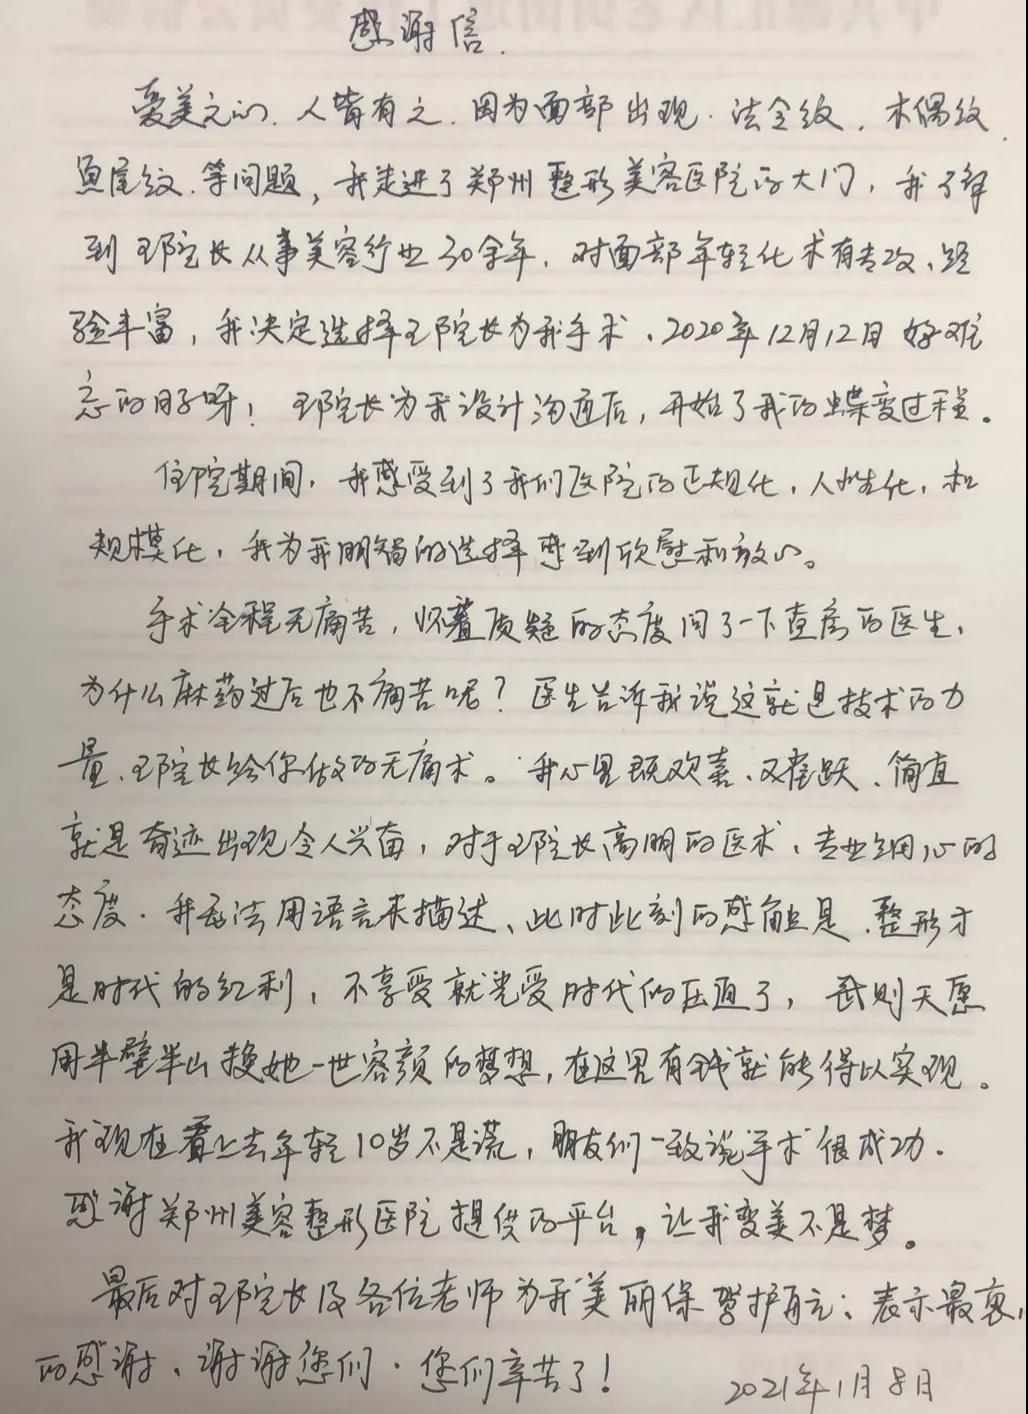 感谢信.
爱美之心.人皆有之.因为面部出现.法令纹.木偶纹
鱼尾纹.等问题,我走进了郑州整形美容医院的大门,我了解
到王院长从事美容行业30余年.对面部年轻化术有专攻、经
验丰富,我决定选择王院长为我手术.2020年12月12日好难
忘的日子呀!王院长为我设计沟通后,开始了我的蝶变过程。
住院期间,我感受到了我们医院的正规化,人性化,和
规模化,我为我明智的选择感到欣慰和放心。
手术全程无痛苦,怀着质疑的态度问了一下查房的医生,
为什么麻药过后也不痛苦呢?医生告诉我说这就是技术的力
量、王院长给你做的无痛术。我心里既欢喜、又雀跃、简直
就是奇迹出现令人兴奋,对于王院长高明的医术、专业细心的
态度.我无法用语言来描述、此时此刻的感触是.整形才
是时代的红利,不享受就光受时代的压迫了,武则天愿
用半壁半山换她一世容颜的梦想,在这里有钱就能得以实现。
我现在看上去年轻10岁不是谎,朋友们一致说手术很成功.
感谢郑州美容整形医院提供的平台,让我变美不是梦。
最后对王院长及各位老师为我美丽保驾护航:表示最衷心
的感谢、谢谢您们.您们辛苦了!
2021年1月8日